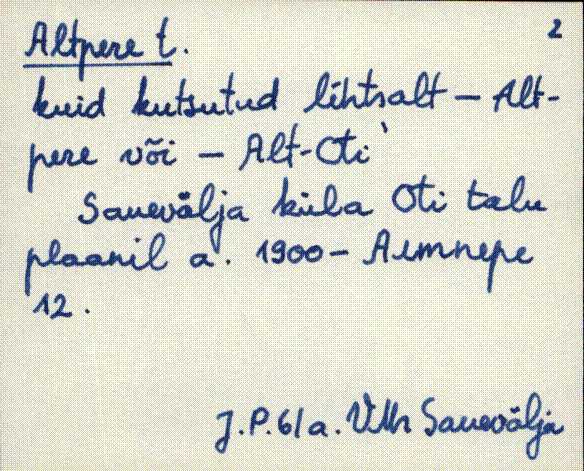 2
Altpere t.
kuid kutsutud lihtsalt – Alt-
pere või – Alt-Oti`
Sauevälja küla Oti talu
plaanil a. 1900 – Алтпере
12.
J.P.61a. VMr Sauevälja